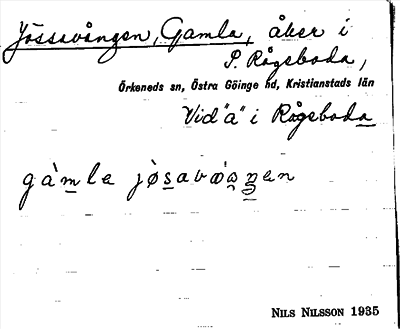 Jössavången, Gamla, åker i
P. Rågeboda,
Örkeneds sn, Östra Göinge hd, Kristianstads län
Vid "a" i Rågeboda
gàmle jòsavóaŋen
NILS NILSSON 1935